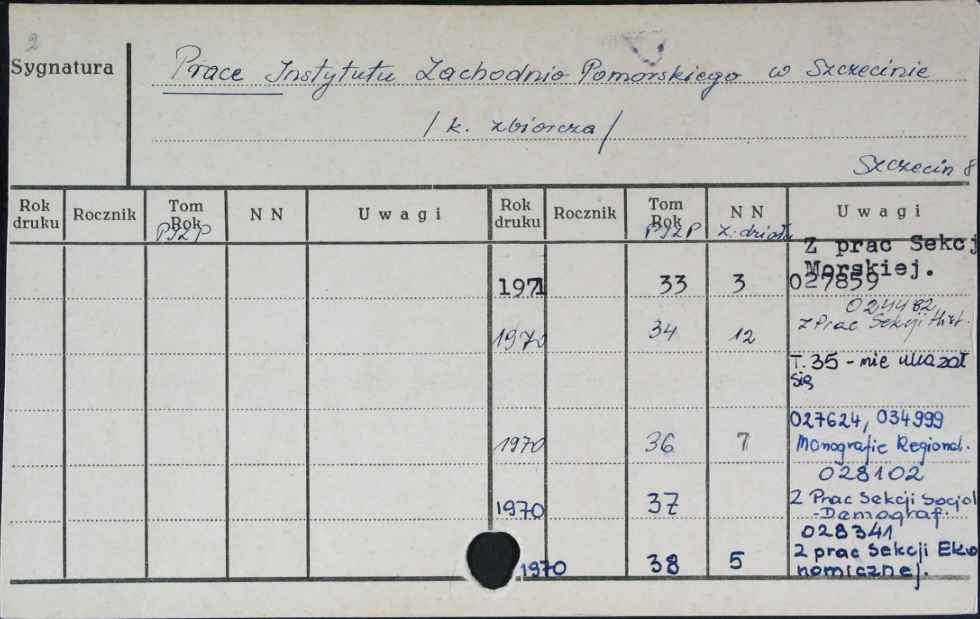 2
Sygnatura
Prace Instytutu Zachodnio Pomorskiego w Szczecinie
/ k. zbiorcza /
Szczecin 8
Rok druku Rocznik Tom Rok PIZP NN Uwagi Rok druku Rocznik Tom Rok PIZP NN z. działu Uwagi
Z prac Sekcj
Morskiej.
1971 33 3 027859
024482
1970 34 12 z Prac Sekcji Hist.
T. 35 - nie ukazał
się
027624, 034999
1970 36 7 Monografie Regional.
028102
1970 37 Z Prac Sekcji Socjol
-Demograf.
028341
1970 38 5 Z prac Sekcji Eko
nomicznej.